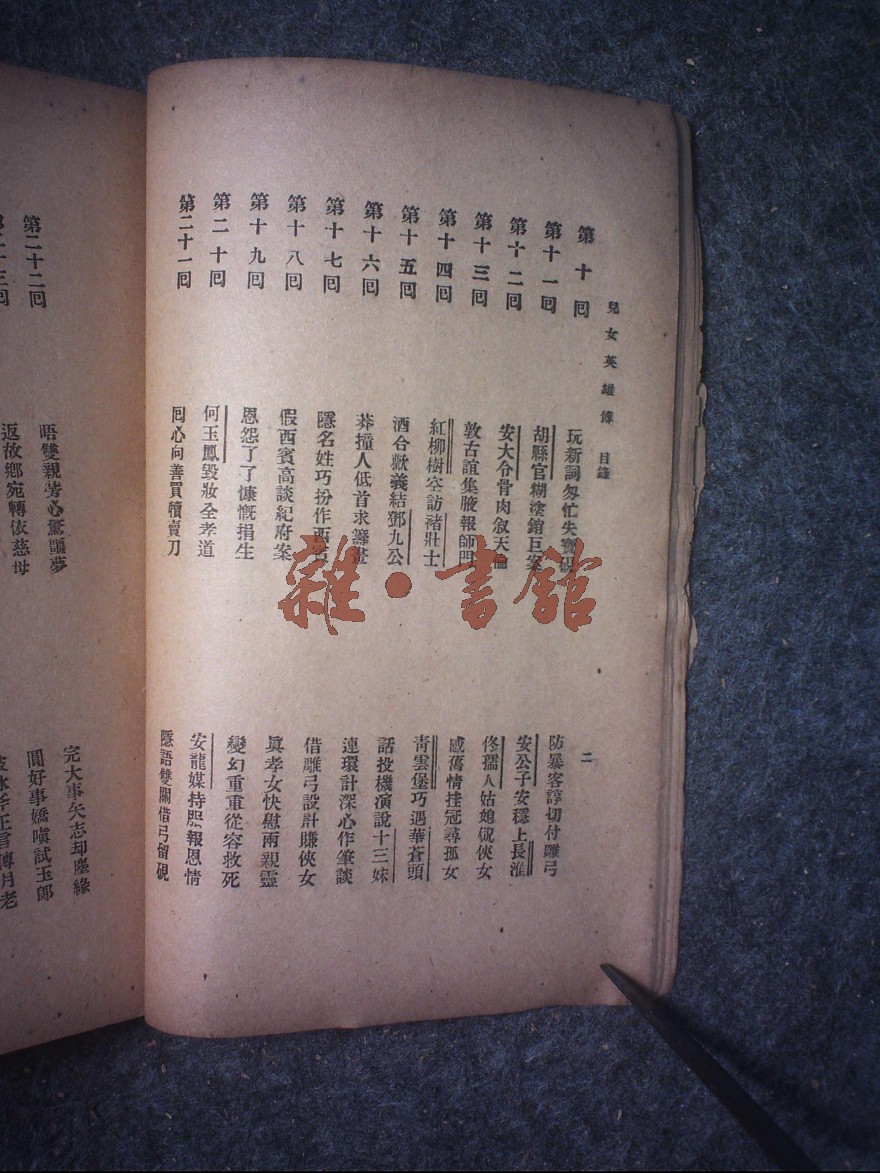 兒女英雄傳 目錄 二
第十回 玩新詞匆忙失寶硯 防暴客諄切付雕弓
第十一回 胡縣官糊塗銷巨案 安公子安穩上長淮
第十二回 安大令骨肉敘天倫 佟孺人姑媳俶俠女
第十三回 敦古誼集腋報師門 感舊情挂冠尋孤女
第十四回 紅柳樹空訪褚壯士 青雲堡巧遇華蒼頭
第十五回 酒合歡義結鄧九公 話投機演說十三妹
第十六回 莽撞人低首求籌畫 連環計深心作筆談
第十七回 隱名姓巧扮作西客 借雕弓設計賺俠女
第十八回 假西賓高談紀府案 眞孝女快慰兩親靈
第十九回 恩怨了了慷慨捐生 變幻重重從容救死
第二十回 何玉鳳毀妝全孝道 安龍媒持服報恩情
第二十一回 回心向善買犢賣刀 隱語雙關借弓留硯
第二十二回 晤雙親芳心驚噩夢 完大事矢志却塵緣
二十三回 返故鄉宛轉依慈母 圓好事嬌嗔試玉郎
雜·書館